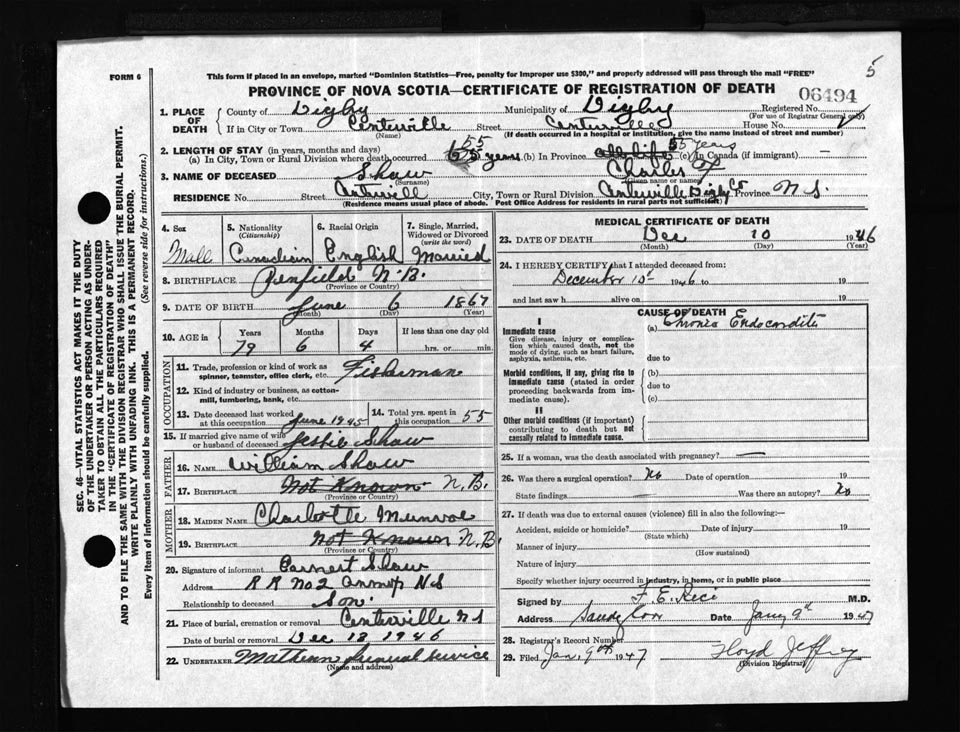 5
FORM 6
This form if placed in an envelope, marked "Dominion Statistics—Free, penalty for improper use $300," and properly addressed will pass through the mail "FREE"
PROVINCE OF NOVA SCOTIA—CERTIFICATE OF REGISTRATION OF DEATH
06494
1. PLACE OF DEATH
County of Digby Municipality of Digby Registered No.
(For use of Registrar General only)
If in City or Town Centerville Street Centerville House No.
(Name) (If death occurred in a hospital or institution, give the name instead of street and number)
2. LENGTH OF STAY (in years, months and days)
(a) In City, Town or Rural Division where death occurred 55 years (b) In Province all life 55 years (c) In Canada (if immigrant) —
3. NAME OF DECEASED Shaw Charles F
(Surname) (Given name or names)
RESIDENCE No. Street Centerville City, Town or Rural Division Centerville Digby Co Province N S.
(Residence means usual place of abode. Post Office Address for residents in rural parts not sufficient)
4. Sex Mall
5. Nationality (Citizenship) Canadian
6. Racial Origin English
7. Single, Married, Widowed or Divorced (write the word) Married
8. BIRTHPLACE Penfield N.B.
(Province or Country)
9. DATE OF BIRTH June 6 1867
(Month) (Day) (Year)
10. AGE in Years Months Days If less than one day old
79 6 4 hrs. or min.
OCCUPATION
11. Trade, profession or kind of work as spinner, teamster, office clerk, etc. Fisherman
12. Kind of industry or business, as cotton-mill, lumbering, bank, etc.
13. Date deceased last worked at this occupation June 1945
14. Total yrs. spent in this occupation 55
15. If married give name of wife or husband of deceased Jessie Shaw
FATHER
16. NAME William Shaw
17. BIRTHPLACE Not Known N.B.
(Province or Country)
MOTHER
18. MAIDEN NAME Charlotte Munroe
19. BIRTHPLACE Not Known N.B.
(Province or Country)
20. Signature of informant Earnest Shaw
Address R R No 2 N S
Relationship to deceased Son
21. Place of burial, cremation or removal Centerville N S
Date of burial or removal Dec 13 1946
22. UNDERTAKER Service
(Name and address)
MEDICAL CERTIFICATE OF DEATH
23. DATE OF DEATH Dec 10 1946
(Month) (Day) (Year)
24. I HEREBY CERTIFY that I attended deceased from:
December 1946 to 19
and last saw h alive on 19
CAUSE OF DEATH
I
Immediate cause
Give disease, injury or complication which caused death, not the mode of dying, such as heart failure, asphyxia, asthenia, etc.
(a) Chronic Endocarditis
due to
Morbid conditions, if any, giving rise to immediate cause (stated in order proceeding backwards from immediate cause).
(b)
due to
(c)
II
Other morbid conditions (if important) contributing to death but not causally related to immediate cause.
25. If a woman, was the death associated with pregnancy? —
26. Was there a surgical operation? No Date of operation 19
State findings Was there an autopsy? No
27. If death was due to external causes (violence) fill in also the following:—
Accident, suicide or homicide? Date of injury 19
(State which)
Manner of injury
(How sustained)
Nature of injury
Specify whether injury occurred in industry, in home, or in public place
Signed by F. E. Rice M.D.
Address Sandy Cove Date Jany 9th 1947
28. Registrar's Record Number
29. Filed Jan. 9th 1947 Floyd Jeffrey
(Division Registrar)
SEC. 46—VITAL STATISTICS ACT MAKES IT THE DUTY
OF THE UNDERTAKER OR PERSON ACTING AS UNDERTAKER
TO OBTAIN ALL THE PARTICULARS REQUIRED
IN THE "CERTIFICATE OF REGISTRATION OF DEATH"
AND TO FILE THE SAME WITH THE DIVISION REGISTRAR WHO SHALL ISSUE THE BURIAL PERMIT.
WRITE PLAINLY WITH UNFADING INK. THIS IS A PERMANENT RECORD.
Every item of information should be carefully supplied. (See reverse side for instructions.)